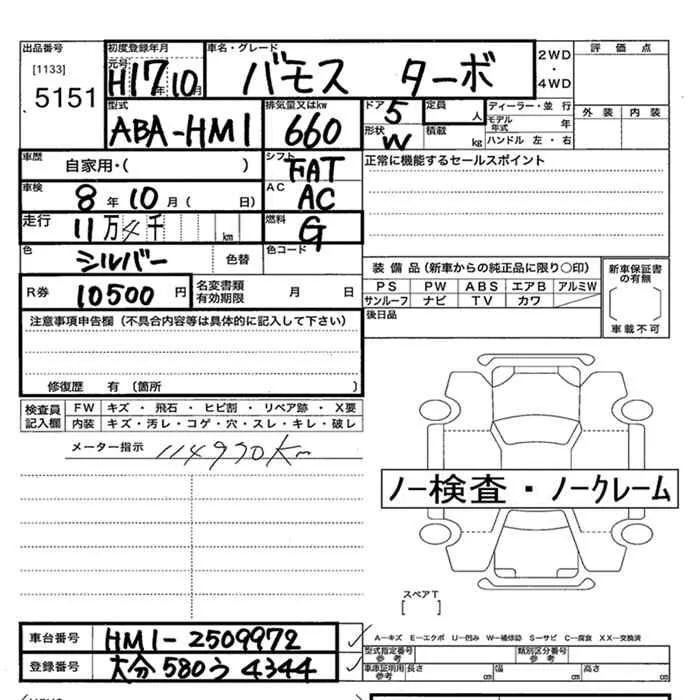 出品番号
[1133]
5151
初度登録年月
元号
H17年10月
車名・グレード
バモス ターボ
2WD
・
4WD
評価点
外装 内装
型式
ABA-HM1
排気量又はkw
660
ドア
5
形状
W
定員 人
積載 kg
ディーラー・並行
モデル年式 年
ハンドル 左・右
車歴
自家用・( )
シフト
FAT
正常に機能するセールスポイント
車検
8年10月( 日)
AC
AC
走行
11万4千 km
燃料
G
色
シルバー
色替
色コード
R券
10500円
名変書類
有効期限
月 日
装備品(新車からの純正品に限り○印)
PS PW ABS エアB アルミW
サンルーフ ナビ TV カワ
後日品
新車保証書
の有無
車載不可
注意事項申告欄(不具合内容等は具体的に記入して下さい)
修復歴 有〔箇所 〕
検査員
記入欄
FW キズ・飛石・ヒビ割・リペア跡・X要
内装 キズ・汚レ・コゲ・穴・スレ・キレ・破レ
メーター指示 114990Km
ノー検査・ノークレーム
スペアT
[ ]
車台番号 HM1-2509972
登録番号 大分580う4344
A−キズ E−エクボ U−凹み W−補修跡 S−サビ C−腐食 XX−交換済
型式指定番号
参考
類別区分番号
参考
車庫証明用
参考
長さ cm 幅 cm 高さ cm